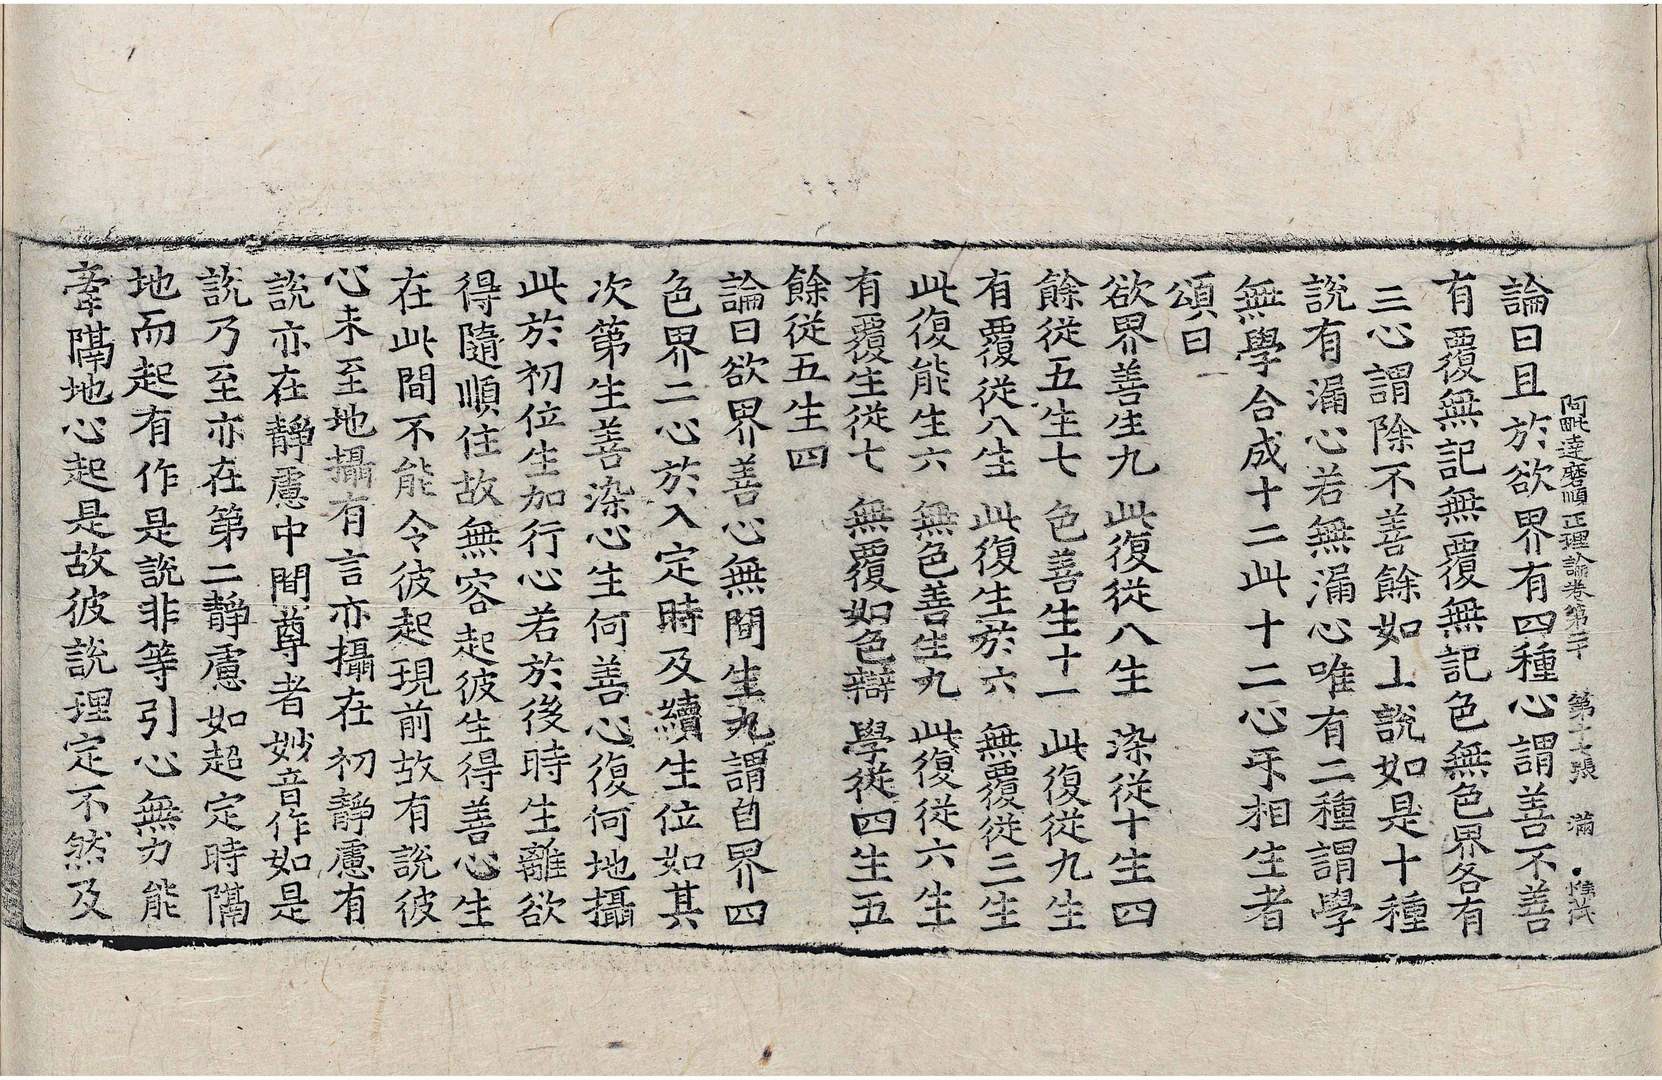 阿毗達磨順正理論卷第二十　第十七張　滿
論曰且於欲界有四種心謂善不善
有覆無記無覆無記色無色界各有
三心謂除不善餘如上說如是十種
說有漏心若無漏心唯有二種謂學
無學合成十二此十二心互相生者
頌曰
欲界善生九　此復從八生　染從十生四
餘從五生七　色善生十一　此復從九生
有覆從八生　此復生於六　無覆從三生
此復能生六　無色善生九　此復從六生
有覆生從七　無覆如色辯　學從四生五
餘從五生四
論曰欲界善心無間生九謂自界四
色界二心於入定時及續生位如其
次第生善染心生何善心復何地攝
此於初位生加行心若於後時生離欲
得隨順住故無容起彼生得善心生
在此間不能令彼起現前故有說彼
心未至地攝有言亦攝在初靜慮有
說亦在靜慮中間尊者妙音作如是
說乃至亦在第二靜慮如超定時隔
地而起有作是說非等引心無力能
牽隔地心起是故彼說理定不然及